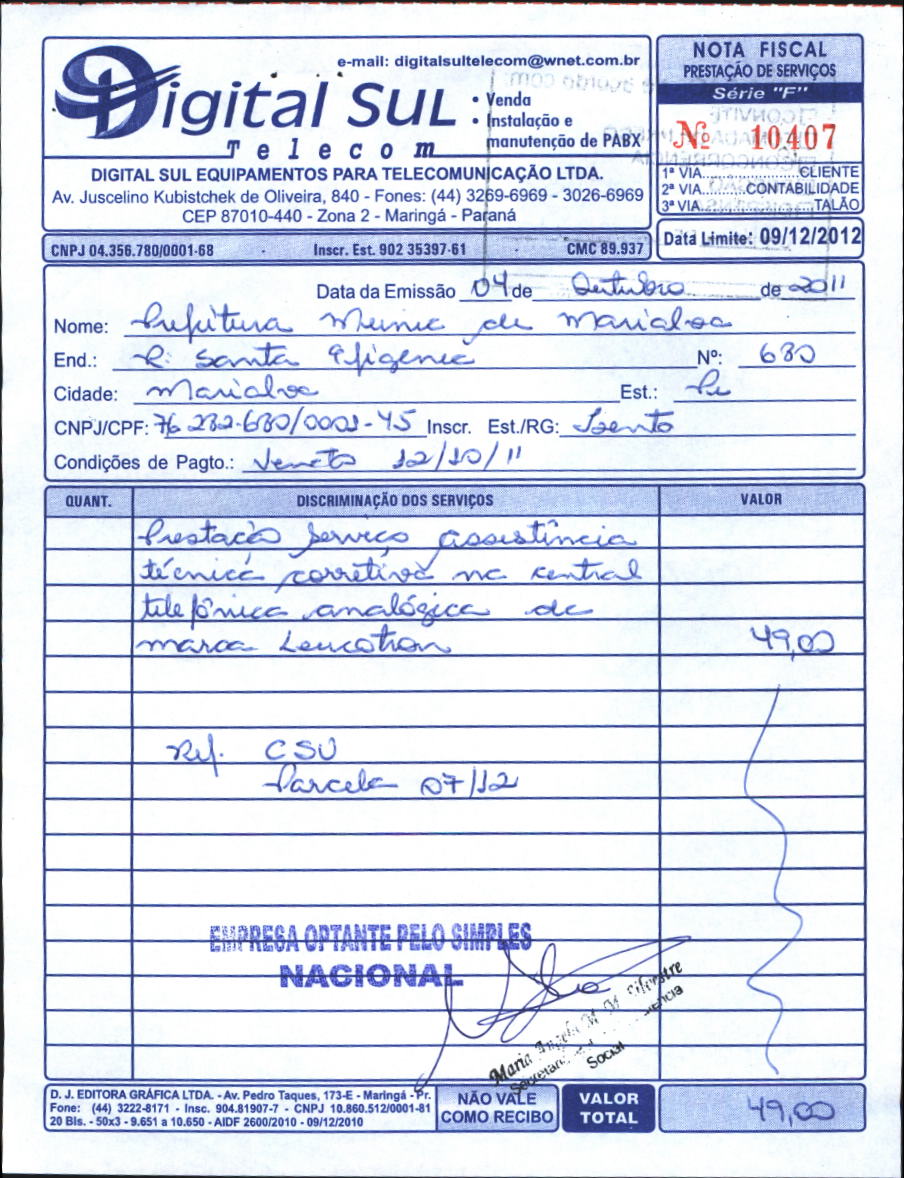 e-mail: digitalsultelecom@wnet.com.br
Digital Sul
Telecom
: Venda
Instalação e
manutenção de PABX
DIGITAL SUL EQUIPAMENTOS PARA TELECOMUNICAÇÃO LTDA.
Av. Juscelino Kubistchek de Oliveira, 840 - Fones: (44) 3269-6969 - 3026-6969
CEP 87010-440 - Zona 2 - Maringá - Paraná
CNPJ 04.356.780/0001-68 · Inscr. Est. 902 35397-61 CMC 89.937
NOTA FISCAL
PRESTAÇÃO DE SERVIÇOS
Série "F"
Nº 10407
1ª VIA CLIENTE
2ª VIA CONTABILIDADE
3ª VIA TALÃO
Data Limite: 09/12/2012
Data da Emissão 04 de Outubro de 2011
Nome: Prefeitura Munic de Marialva
End.: R: Santa Efigenia Nº: 680
Cidade: Marialva Est.: Pr
CNPJ/CPF: 76 282-680/0001-45 Inscr. Est./RG: Isento
Condições de Pagto.: Vencto 12/10/11
QUANT. DISCRIMINAÇÃO DOS SERVIÇOS VALOR
Prestação Serviço assistência
técnica corretiva na central
telefônica analógica da
marca Leucotron 49,00
Ref. CSU
Parcela 07/12
EMPRESA OPTANTE PELO SIMPLES
NACIONAL
Maria Angela M. M. Silvestre
Social
D. J. EDITORA GRÁFICA LTDA. - Av. Pedro Taques, 173-E - Maringá - Pr.
Fone: (44) 3222-8171 - Insc. 904.81907-7 - CNPJ 10.860.512/0001-81
20 Bls. - 50x3 - 9.651 a 10.650 - AIDF 2600/2010 - 09/12/2010
NÃO VALE
COMO RECIBO
VALOR
TOTAL
49,00